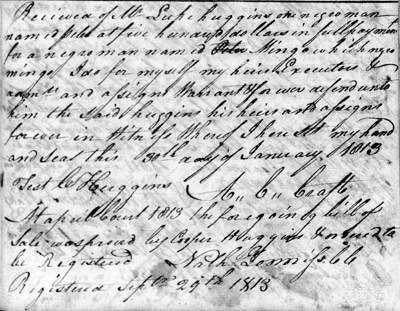 Recieved of Mr Luke huggins one negro man
named Peter at five hundred dollars in full payment
for a negro man named Peter Mingo which negro
mingo I do for myself my heirs Executors &
and assigns Warrant & forever defend unto
him the said huggins his heirs and assigns
forever in Witness Whereof I have Set my hand
and Seal this 30th day of January 1813
Test C Huggins
At april Court 1813 the foregoing bill of
Sale was proved by Cooper Huggins & ordered to
be Registered
Registered Sept 29th 1813